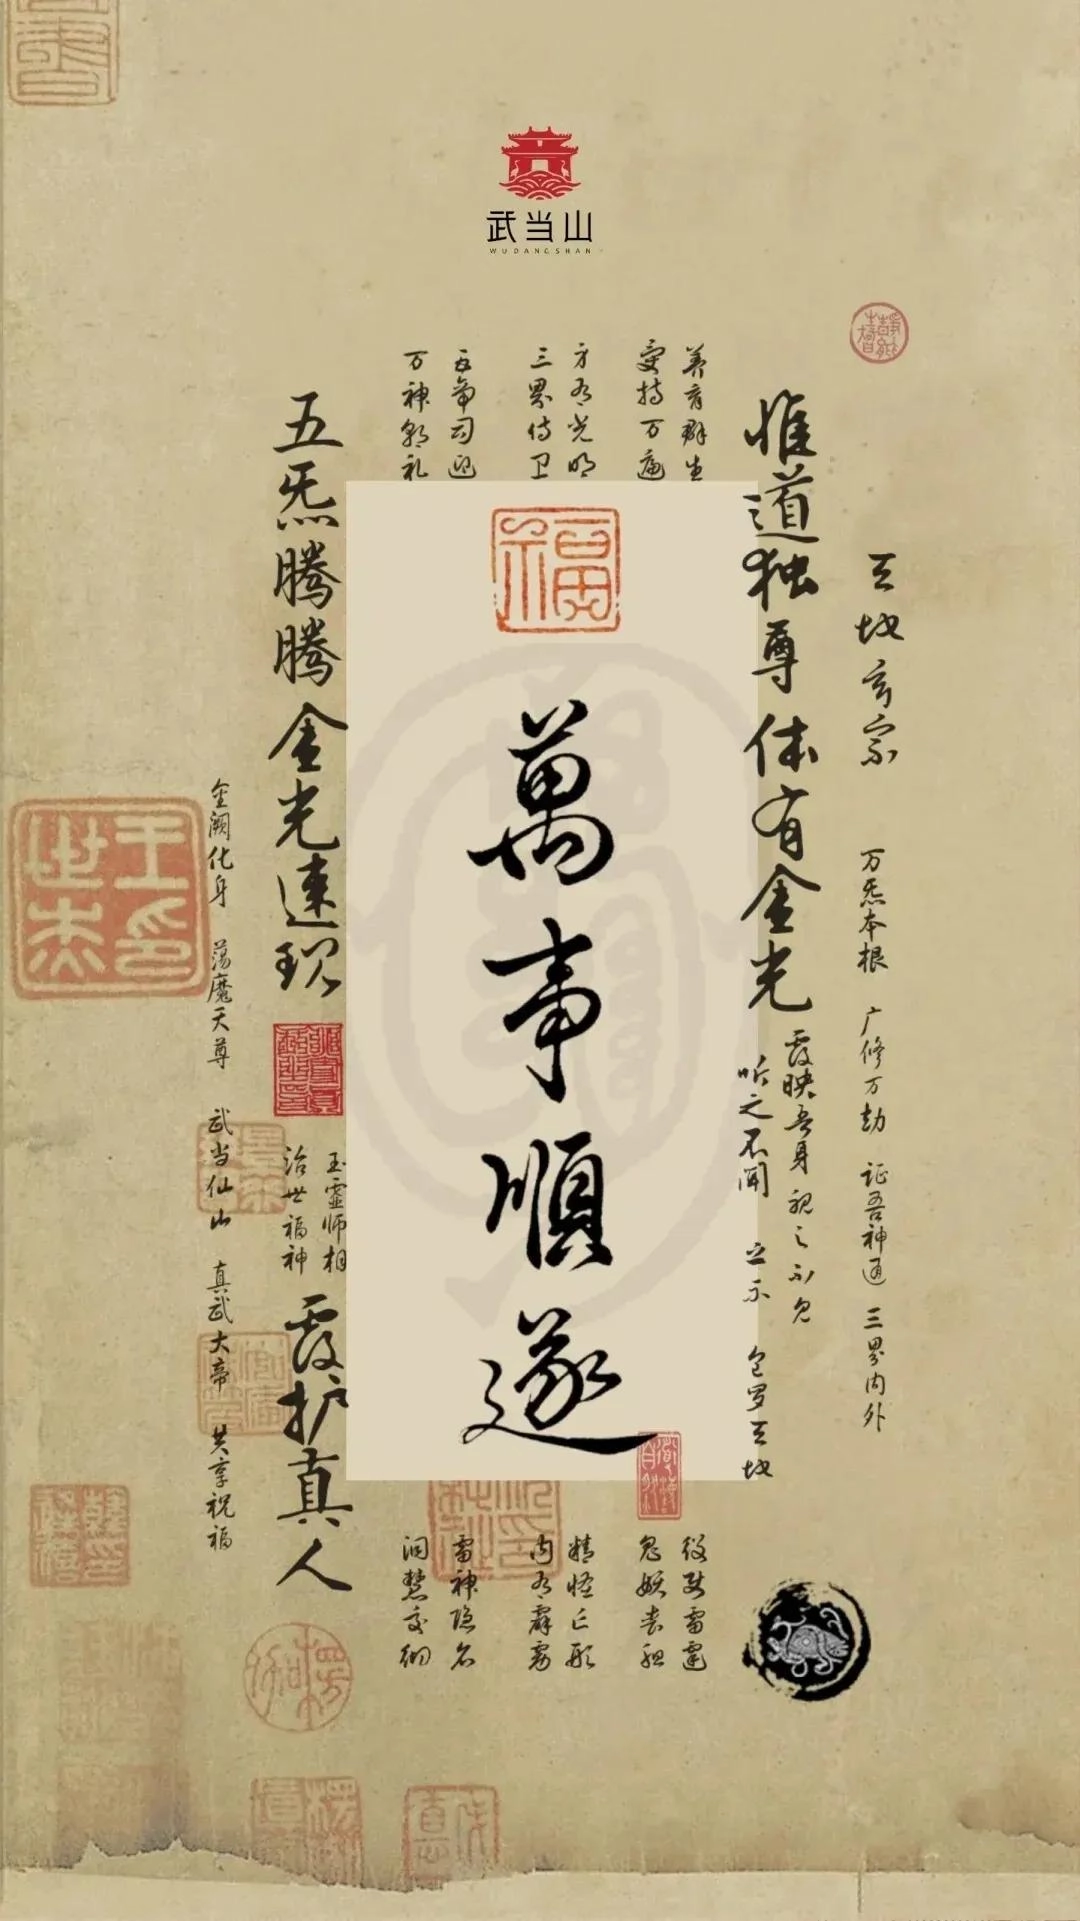 武当山
WUDANGSHAN
天地玄宗
万炁本根 广修万劫 证吾神通 三界内外
惟道独尊 体有金光
覆映吾身 视之不见
听之不闻
包罗天地
养育群生
受持万遍
身有光明
三界侍卫
五帝司迎
万神朝礼
役使雷霆
鬼妖丧胆
精怪亡形
内有霹雳
雷神隐名
洞慧交彻
五炁腾腾 金光速现
覆护真人
玉虚师相
治世福神
金阙化身 荡魔天尊 武当仙山 真武大帝 共享祝福
福
萬事順遂